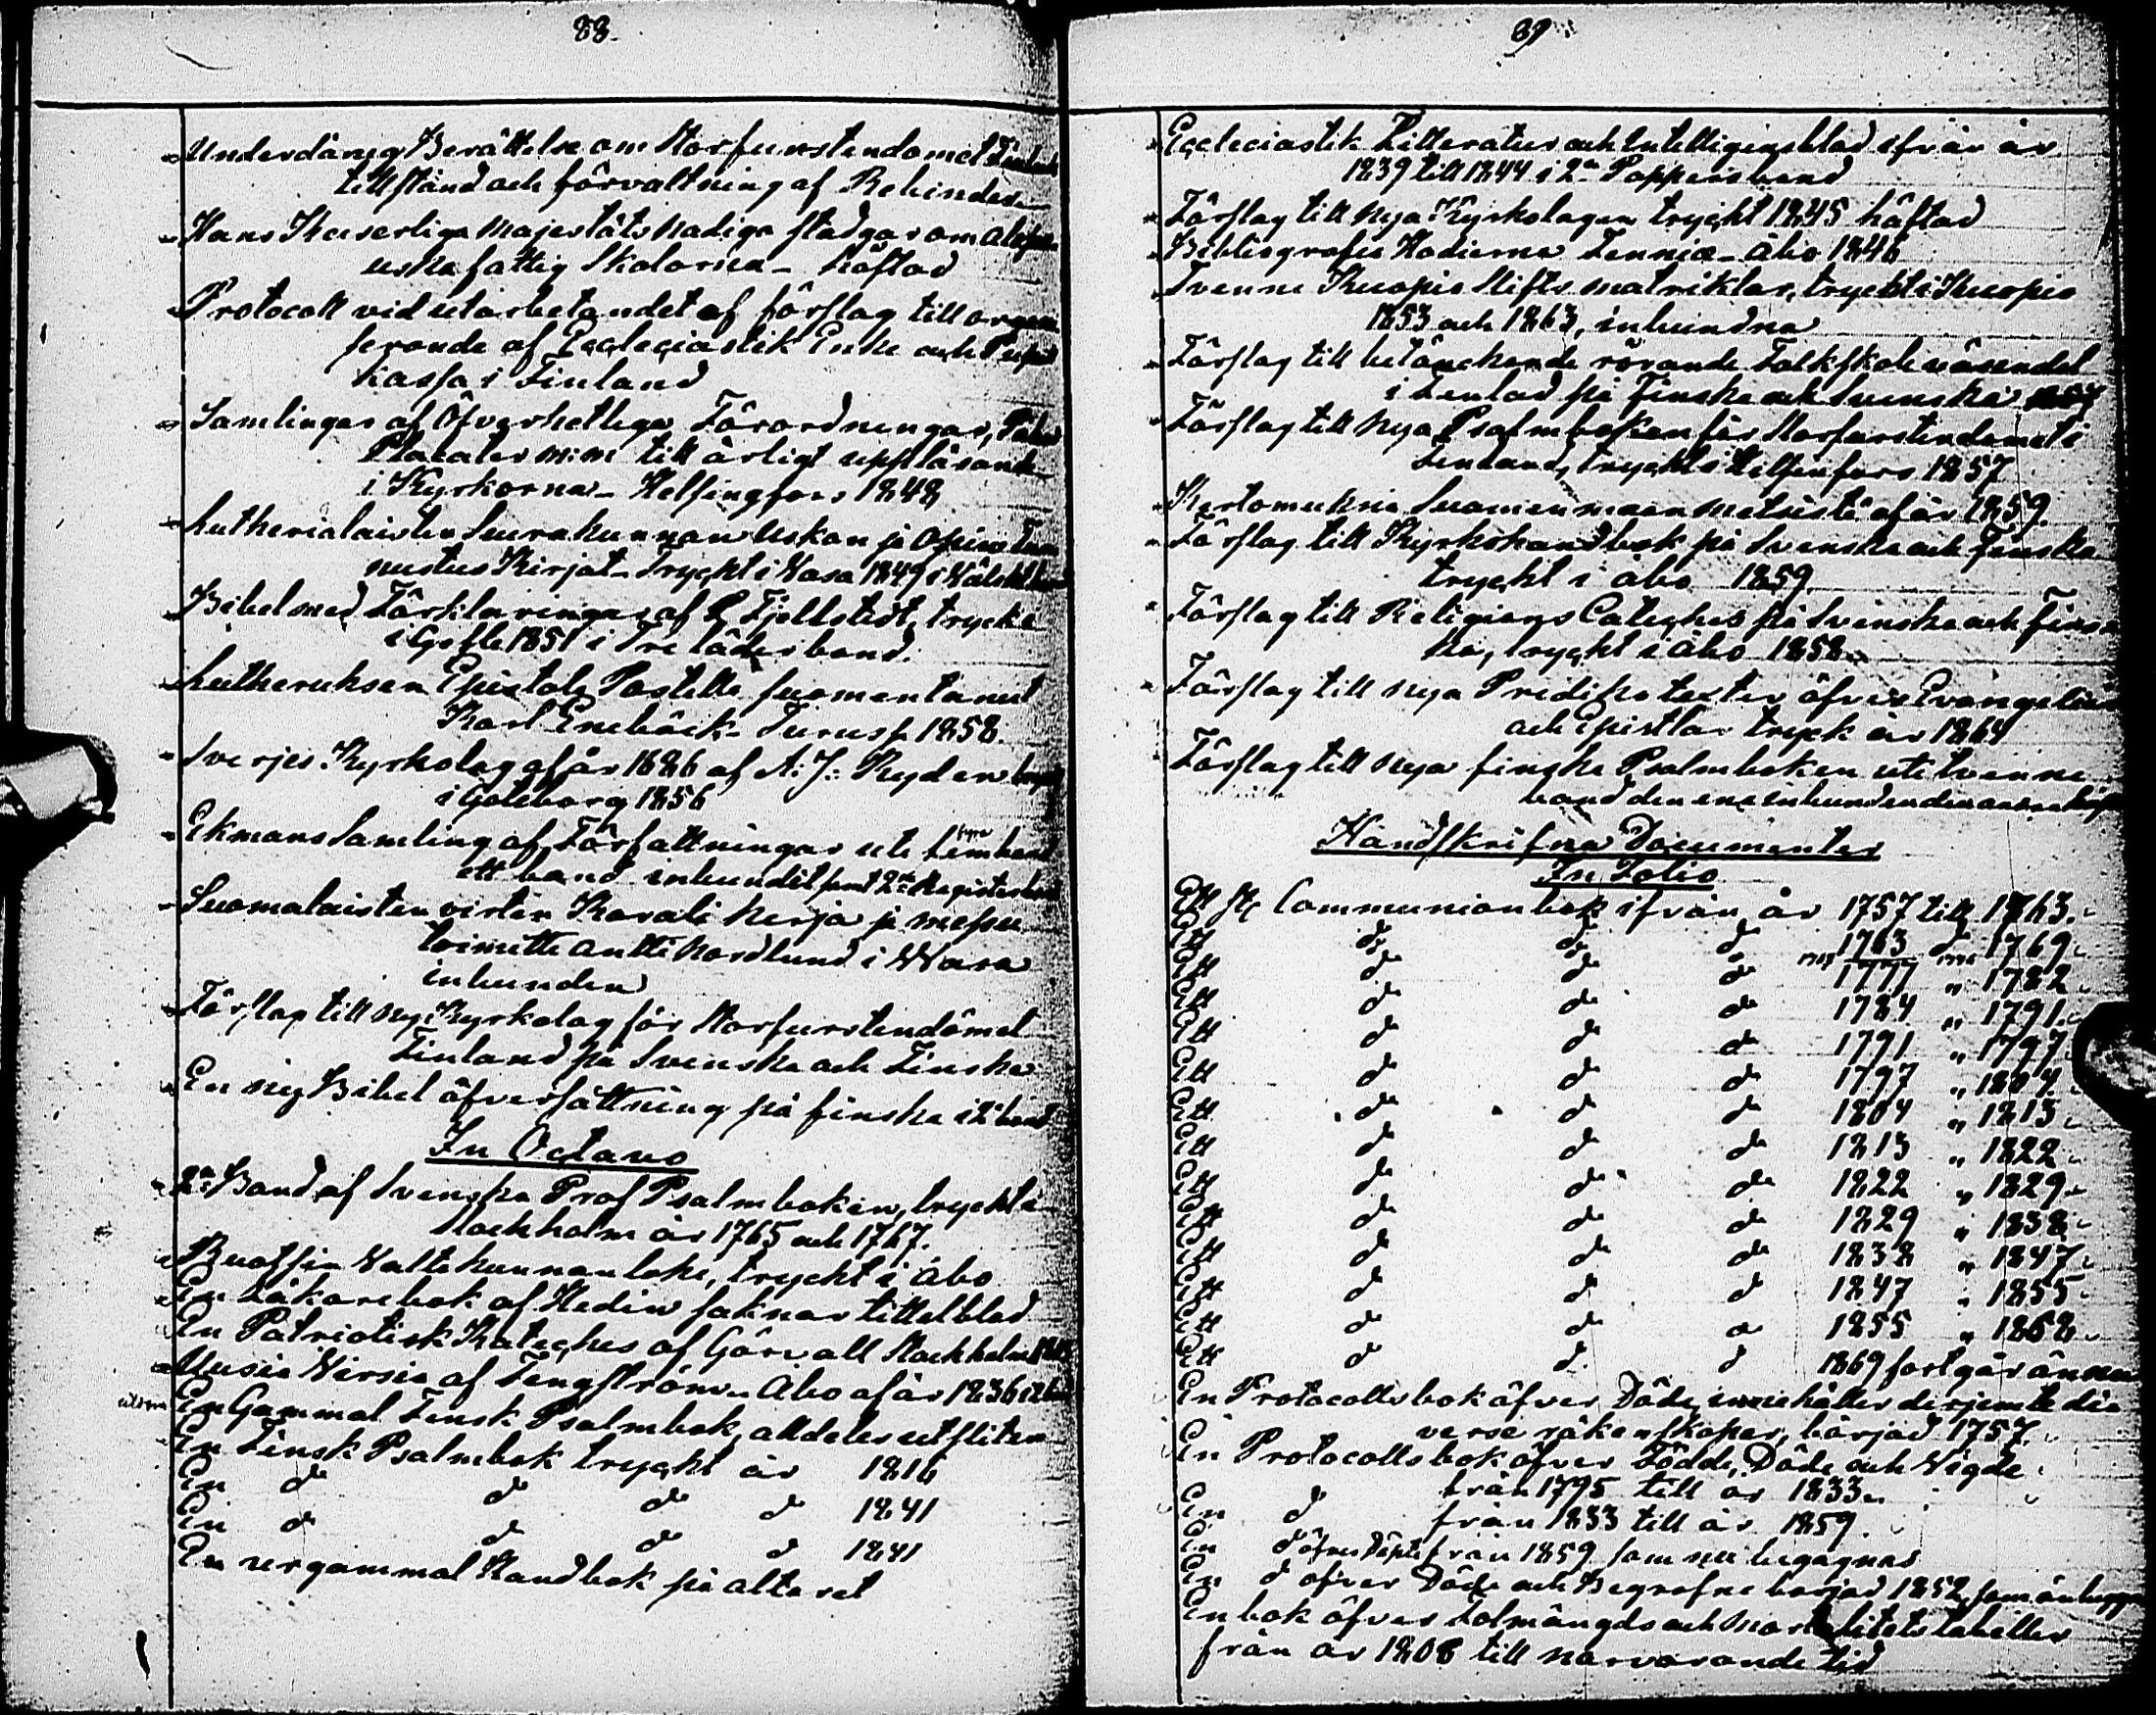 88.
Underdånig Berättelse om Storfurstendömet Finlands
tillstånd och förvaltning af Rehinder
Hans Keiserliga Majestäts Nådiga stadgar om
fattig Skolorna - häftad
Protocoll vid utarbetandet af förslag till
serande af Eccleciastik Enke och
Kassa i Finland
Samlingar af Öfverhetliga Förordningar,
Placater m:m till årligt uppläsande
i Kyrkorna - Helsingfors 1848
Lutherialaisten Seurakunnan Uskon ja Opin
nustus Kirjat - Tryckt i Wasa 1849 i
Bibel med Förklaringar af P Fjellstedt, tryckt
i Gefle 1851 i Tre läderband.
Lutheruksen Epistola Postilla suomentanut
Karl Enebäck - Turussa 1858.
Sverjes Kyrkolag af år 1686 af A: J: Ryden
i Göteborg 1856
Ekmans Samling af Författningar uti fem band
ett band inbundit samt 2ne Registerband
Suomalaisten virten Korali kirja ja messu
toimitti Antti Nordlund i Wasa
inbunden
Förslag till ny Kyrkolag för Storfurstendömet
Finland på Svenska och Finska
En ny Bibel öfversättning på finska i 2 band
In Octavo
2ne Band af Svenska Prof Psalmboken, tryckt i
Stockholm år 1765 och 1767.
Ruotsin Waltakunnan laki, tryckt i Åbo
En Läkarebok af Hedin saknar tittelblad
En Patriotisk Kateches af Görvall Stockholm
Uusia Wirsia af Tengström - Åbo af år 1836
En Gammal Finsk Psalmbok, alldeles utsliten
En Finsk Psalmbok tryckt år 1816
En do do do do 1841
En do do do do 1841
En urgammal Handbok på altaret
89
Eccleciastik Litteratur och Intelligensblad ifrån år
1839 till 1844 i 2ne Pappersband
Förslag till Nya Kyrkolagen tryckt 1845 häftad
Bibliografia Hodierna Fennia - Åbo 1846
Tvenne Kuopio Stifts matriklar, tryckt i Kuopio
1853 och 1863, inbundna
Förslag till betänckande rörande Folkskoleväsendet
i Finland på Finska och Svenska
Förslag till Nya Psalmboken för Storfurstendömet i
Finland, tryckt i Helsinfors 1857
Kertomuksia Suomenmaan Metsistä af år 1859.
Förslag till Kyrkohandbok på Svenska och Finska
tryckt i Åbo 1859.
Förslag till Religions Catechis på Svenska och Fins
ka, tryckt i Åbo 1858
Förslag till nya Prediko texter öfver Evangelier
och Epistlar tryck år 1864
Förslag till nya finska Psalmboken uti tvenne
band den ena inbunden den andra
Handskrifna Documenter
In Folio
Ett St Communionbok ifrån år 1757 till 1763.
Ett do do do 1763 do 1769
Ett do do do 1777 " 1782
Ett do do do 1784 " 1791.
Ett do do do 1791 " 1797
Ett do do do 1797 " 1804
Ett do do do 1804 " 1813
Ett do do do 1813 " 1822
Ett do do do 1822 " 1829
Ett do do do 1829 " 1838
Ett do do do 1838 " 1847
Ett do do do 1847 " 1855
Ett do do do 1855 " 1868
Ett do do do 1869 fortgår ännu
En Protocolls bok öfver Döde, innehåller derjemte di
verse räkenskaper, börjad 1757.
En Protocolls bok öfver Födde, Döde och Wigde
från 1795 till år 1833
En do från 1833 till år 1859.
En do öfver Döpte från 1859 som nu begagnas
En do öfver Döde och Begrafne börjad 1852, som än
En bok öfver Folmängds och Mortalitets tabeller
från år 1808 till narvarande tid